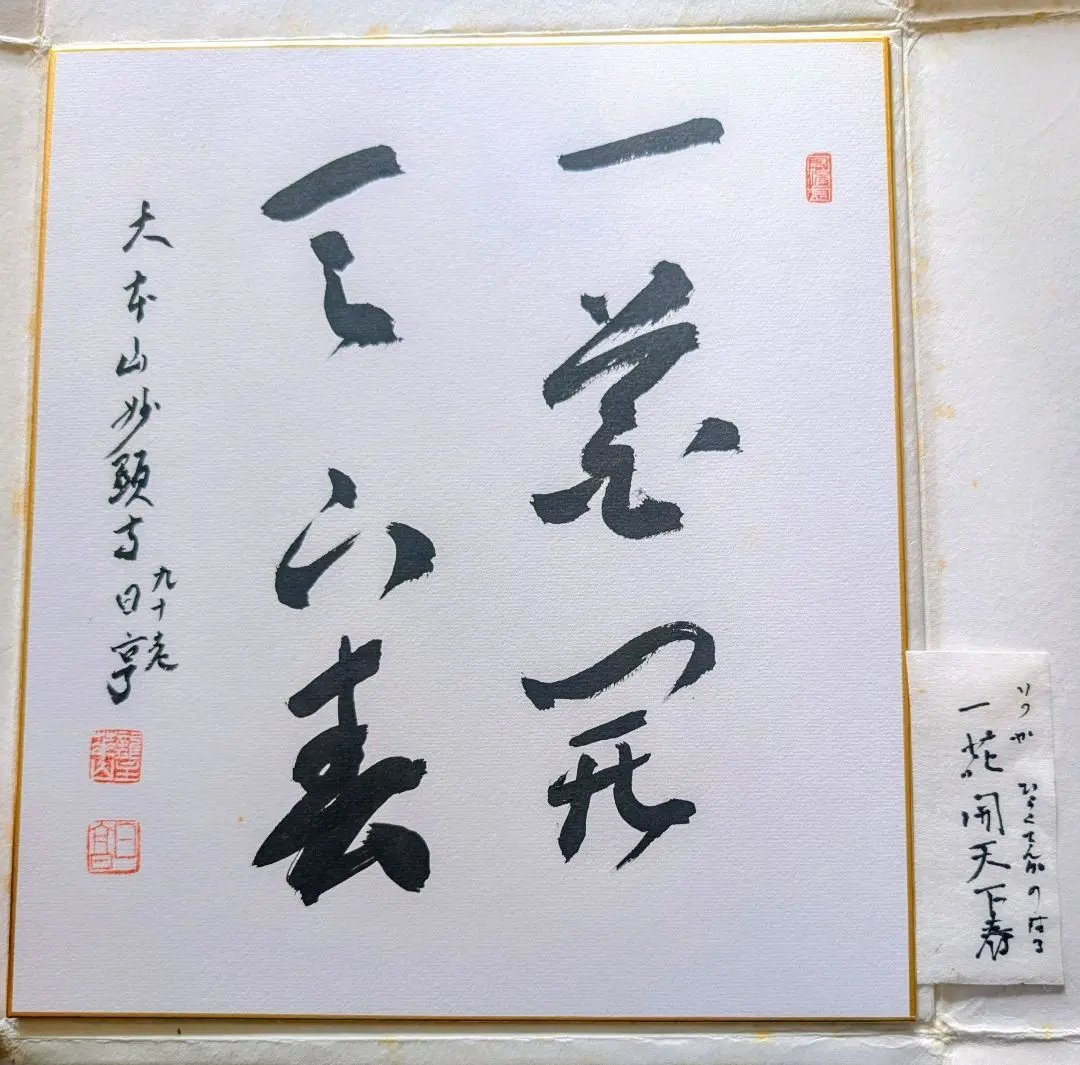 一花開
天下春
大本山妙顕寺日亨
九十老
いつか ひらくてんかのはる
一花開天下春